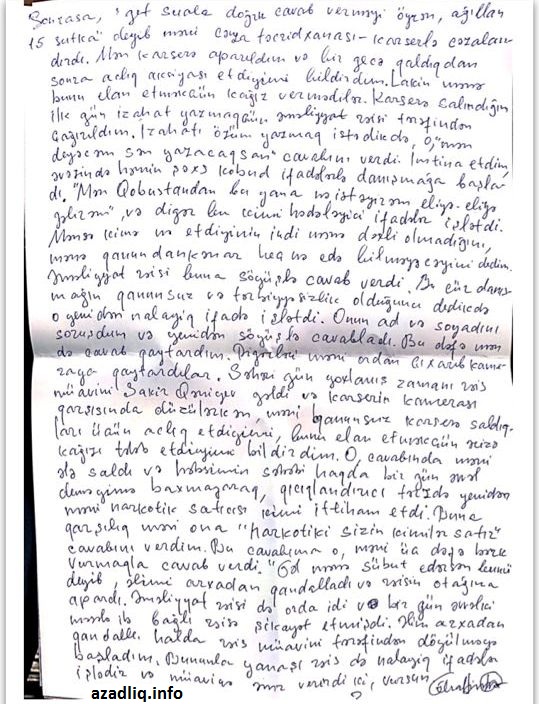 Sonrasa, "get suala doğru cavab verməyi öyrən, ağıllan
15 sutka" deyib məni cəza təcridxanası - karserlə cəzalan-
dırdı. Mən karserə aparıldım və bir gecə qaldıqdan
sonra aclıq aksiyası etdiyimi bildirdim. Lakin mənə
bunu elan etmək üçün kağız vermədilər. Karserə salındığım
ilk gün izahat yazmaq üçün əməliyyat rəisi tərəfindən
çağırıldım. İzahatı özüm yazmaq istədikdə, o, "mən
deyəcəm sən yazacaqsan" cavabını verdi. İmtina etdim,
əvəzində həmin şəxs kobud ifadələrlə danışmağa başla-
dı. "Mən Qobustandan bu yana nə istəyirəm eliyə-eliyə
gəlirəm", və digər bu kimi hədələyici ifadələr işlətdi.
Mənsə kimə nə etdiyinin indi mənə dəxli olmadığını,
mənə qanundankənar heç nə edə bilməyəcəyini dedim.
Əməliyyat rəisi buna söyüşlə cavab verdi. Bu cür danış-
mağın qanunsuz və tərbiyəsizlik olduğunu dedikdə
o yenidən nalayiq ifadə işlətdi. Onun ad və soyadını
soruşdum və yenidən söyüşlə cavabladı. Bu dəfə mən
də cavab qaytardım. Digərləri məni ordan çıxarıb kame-
raya qaytardılar. Səhəri gün yoxlanış zamanı rəis
müavini Şakir gəldi və karserin kamerası
qarşısında düzülərkən, məni qanunsuz karserə saldıq-
ları üçün aclıq etdiyimi, bunu elan etmək üçün sizə
kağızı tələb etdiyimi bildirdim. O, cavabında məni
ələ saldı və həbsimin səbəbi haqda bir gün əvvəl
deməyimə baxmayaraq, qıcıqlandırıcı tərzdə yenidən
məni narkotik satıcısı kimi ittiham etdi. Buna
qarşılıq mən ona "narkotiki sizin kimilər satır"
cavabını verdim. Bu cavabıma o, məni üç dəfə bərk
vurmaqla cavab verdi. "Gəl mənə sübut edərsən bunu"
deyib, əlimi arxadan qandalladı və rəisin otağına
apardı. Əməliyyat rəisi də orda idi və bir gün əvvəlki
məsələ ilə bağlı rəisə şikayət etmişdi. Əlim arxadan
qandallı halda rəis müavini tərəfindən döyülməyə
başladım. Bununla yanaşı rəis də nalayiq ifadələr
işlədir və müavinə əmr verirdi ki, vursun
azadliq.info